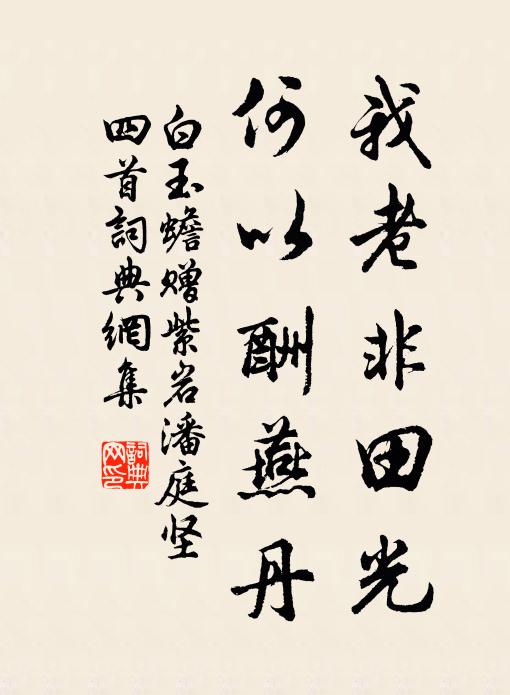 我老非田光
何以酬燕丹
白玉蟾赠紫岩潘庭坚
四首詞典網集
詞典網印